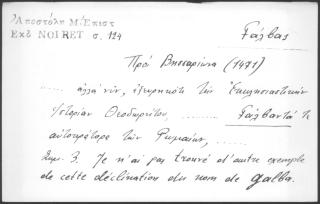 Ἀποστόλη Μ. Ἐπιστ
Ἐκδ NOIRET σ. 124
Γάλβας
Πρὸ Βησσαρίωνα (1471)
..... ἀλλὰ νῦν, ἐξῃρηκότι τῶν Ἐκκλησιαστικῶν
ἱστοριῶν Θεοδωρίτου, ...... Γάλβαντά τε
αὐτοκράτορα τῶν Ρωμαίων, .......
Σημ. 3. Je n'ai pas trouvé d'autre exemple
de cette déclination du nom de Galba.